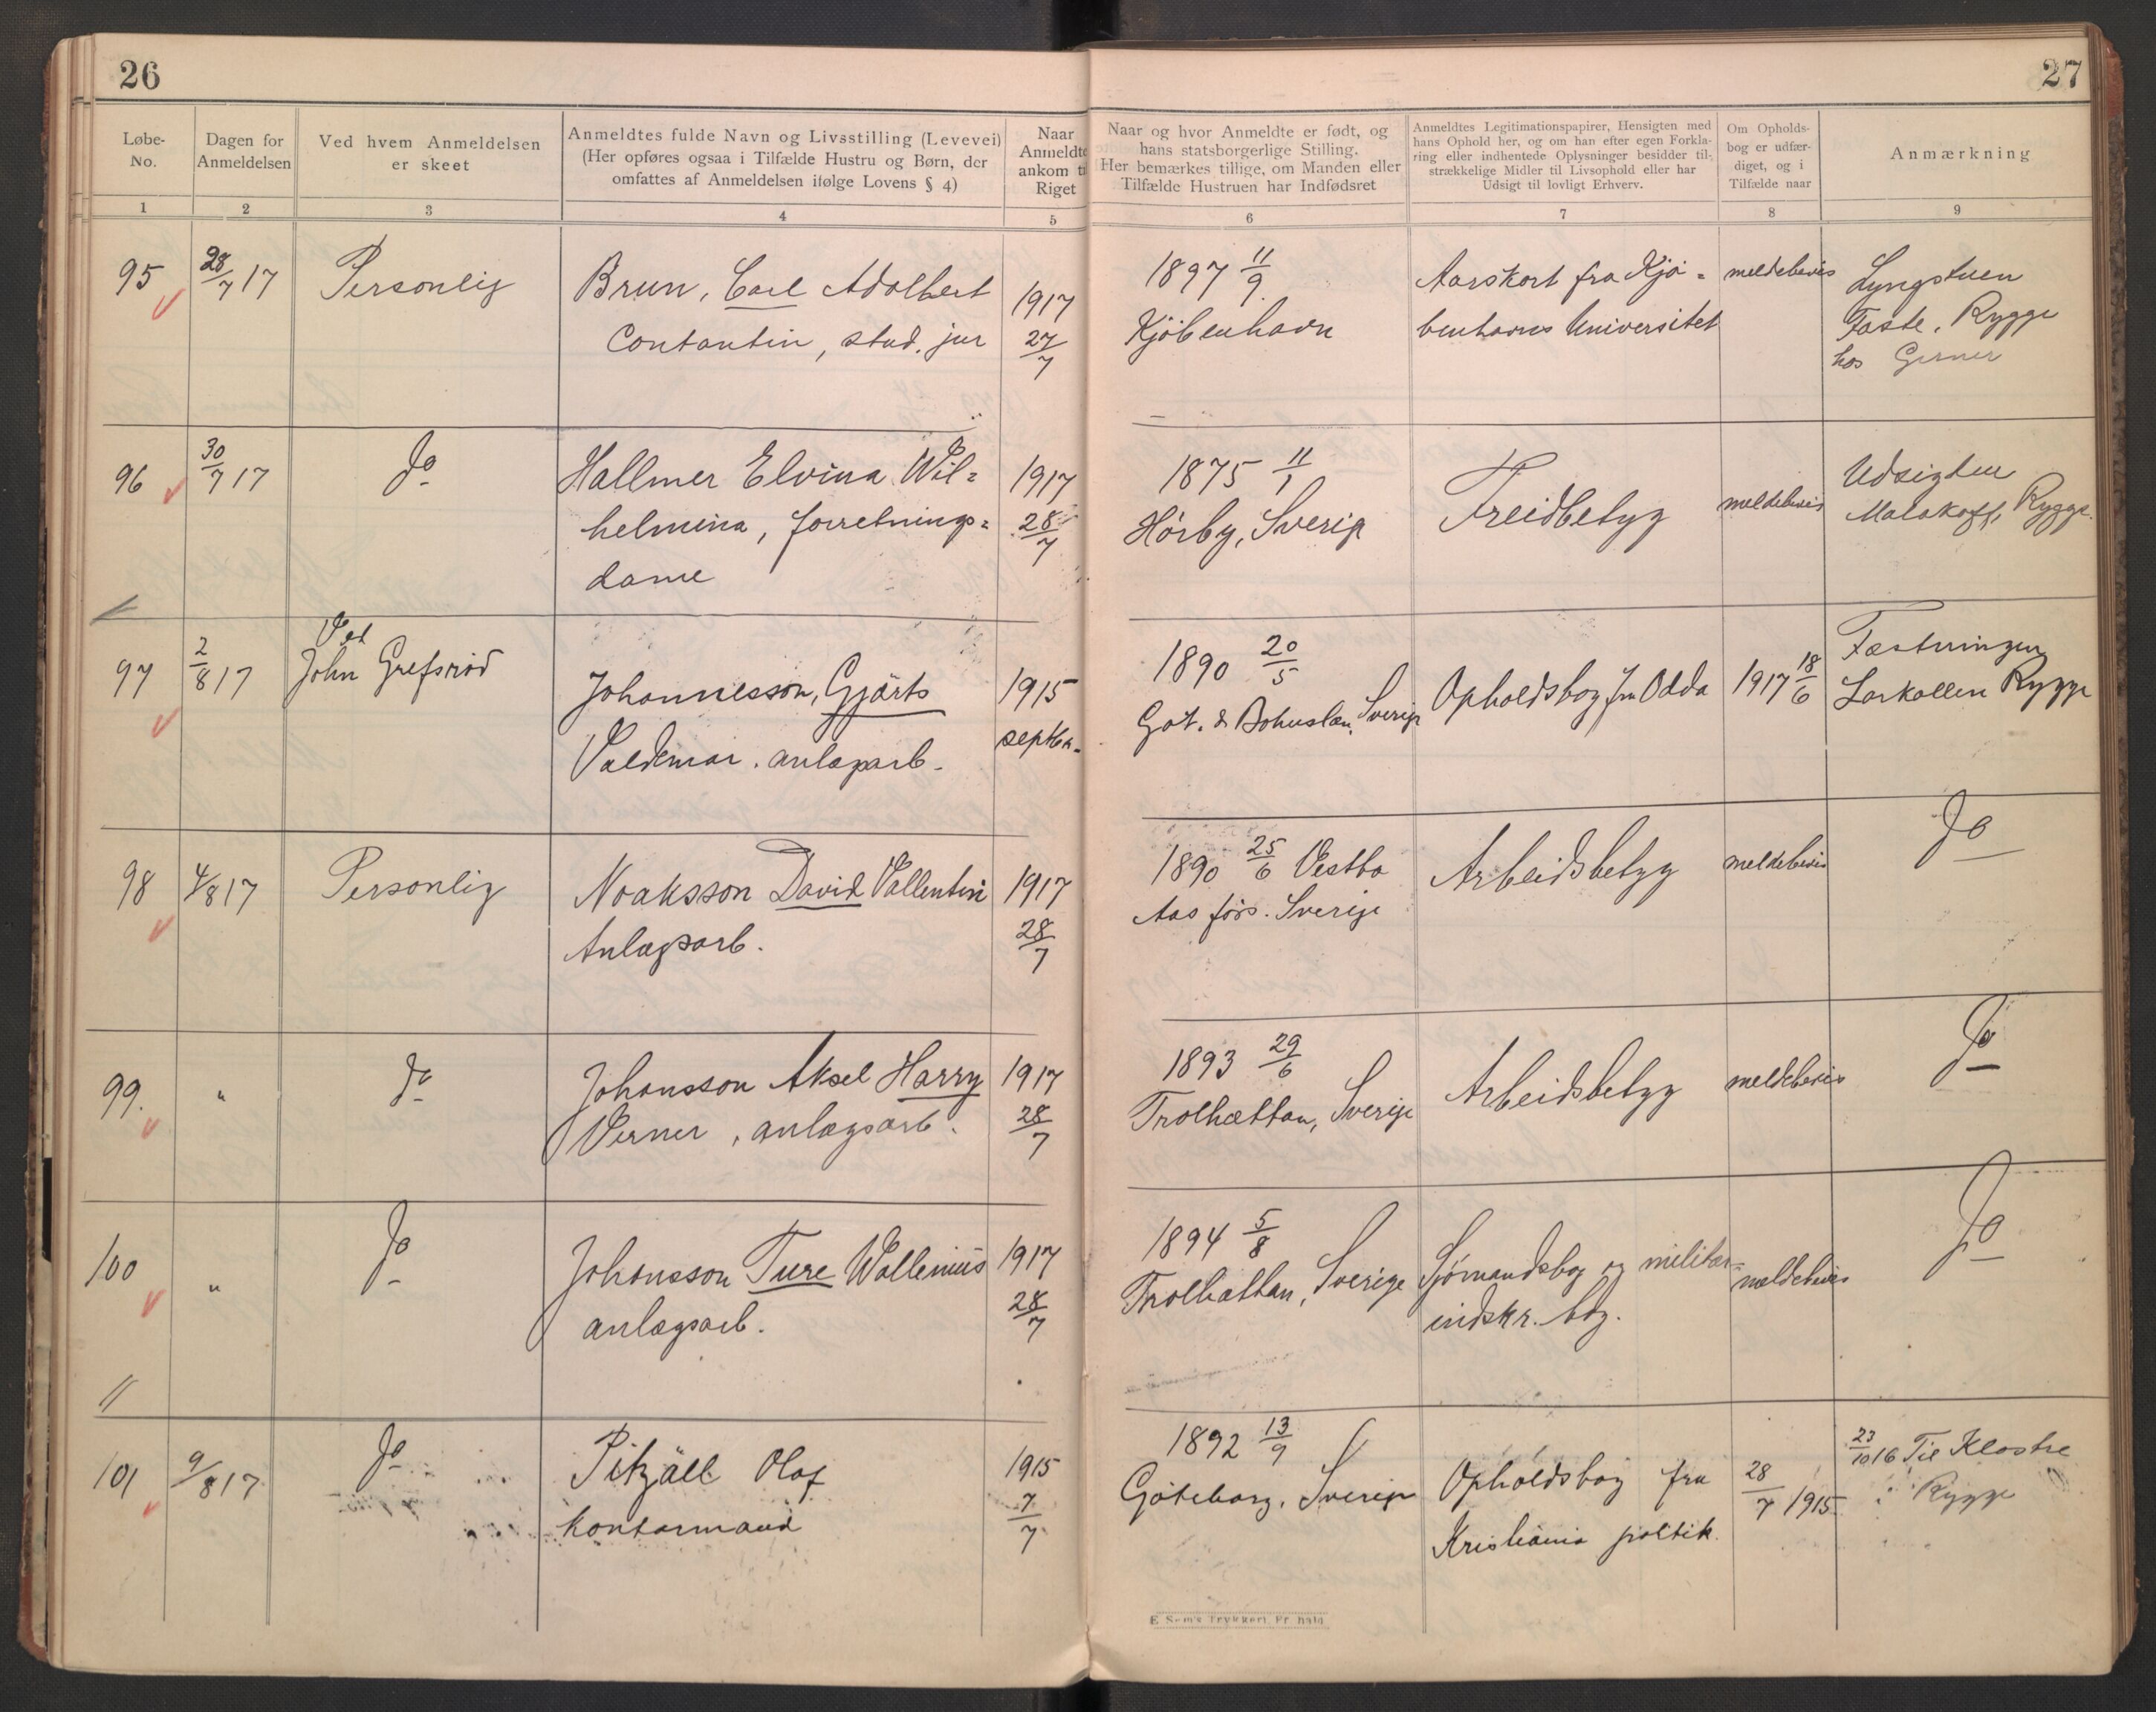 26
27
Løbe-
No.
Dagen for
Anmeldelsen
Ved hvem Anmeldelsen
er skeet
Anmeldtes fulde Navn og Livsstilling (Levevei)
(Her opføres ogsaa i Tilfælde Hustru og Børn, der
omfattes af Anmeldelsen ifølge Lovens § 4)
Naar
Anmeldte
ankom til
Riget
Naar og hvor Anmeldte er født, og
hans statsborgerlige Stilling.
Her bemærkes tillige, om Manden eller
Tilfælde Hustruen har Indfødsret
Anmeldtes Legitimationspapirer, Hensigten med
hans Ophold her, og om han efter egen Forkla-
ring eller indhentede Oplysninger besidder til-
strækkelige Midler til Livsophold eller har
Udsigt til lovligt Erhverv.
Om Opholds-
bog er udfær-
diget, og i
Tilfælde naar
Anmærkning
1
2
3
4
5
6
7
8
9
95
28/7 17
Personlig
Brun, Carl Adolbert
Contantin, stud. jur
1917
27/7
1897 11/9
Kjöbenhavn
Aarskort fra Kjö-
benhavns Universitet
meldebevis
Lyngstuen
Faste, Rygge
hos Gerner
96
30/7 17
do
Hallmer Elvina Wil=
helmina, forretnings=
dame
1917
28/7
1875 11/1
Hörby, Sverig
Freidbetyg
meldebevis
Udsigten
Malakoff, Rygge.
97
2/8 17
Ved
John Grefsröd
Johannesson, Gjärts
Valdemar. anlægsarb.
1915
septbr.
1890 20/5
Göt. & Bohuslän, Sverig
Opholdsbog fra Odda
1917 18/6
Fæstningen
Larkollen Rygge
98
4/8 17
Personlig
Noaksson David Vallentin
Anlægsarb.
1917
28/7
1890 25/6 Vestbo
Aas förs. Sverige
Arbeidsbetyg
meldebevis
Do
99.
"
do
Johansson Aksel Harry
Verner, anlægsarb.
1917
28/7
1893 29/6
Trolhættan, Sverige
Arbeidsbetyg
meldebevis
Do
100
"
Do
Johansson Ture Wallenius
anlægsarb.
1917
28/7
1894 5/8
Trolhættan, Sverige
Sjömandsbog og militær=
indskr. bog.
meldebevis
Do
101
9/8 17
Do
Pitzäll Olof
Kontormand
1915
7/7
1892 13/9
Göteborg, Sverige
Opholdsbog fra
Kristiania politik.
28/7 1915
23/10 16 Til Klostre
Rygge
E. Sem's Trykkeri, Fr.hald